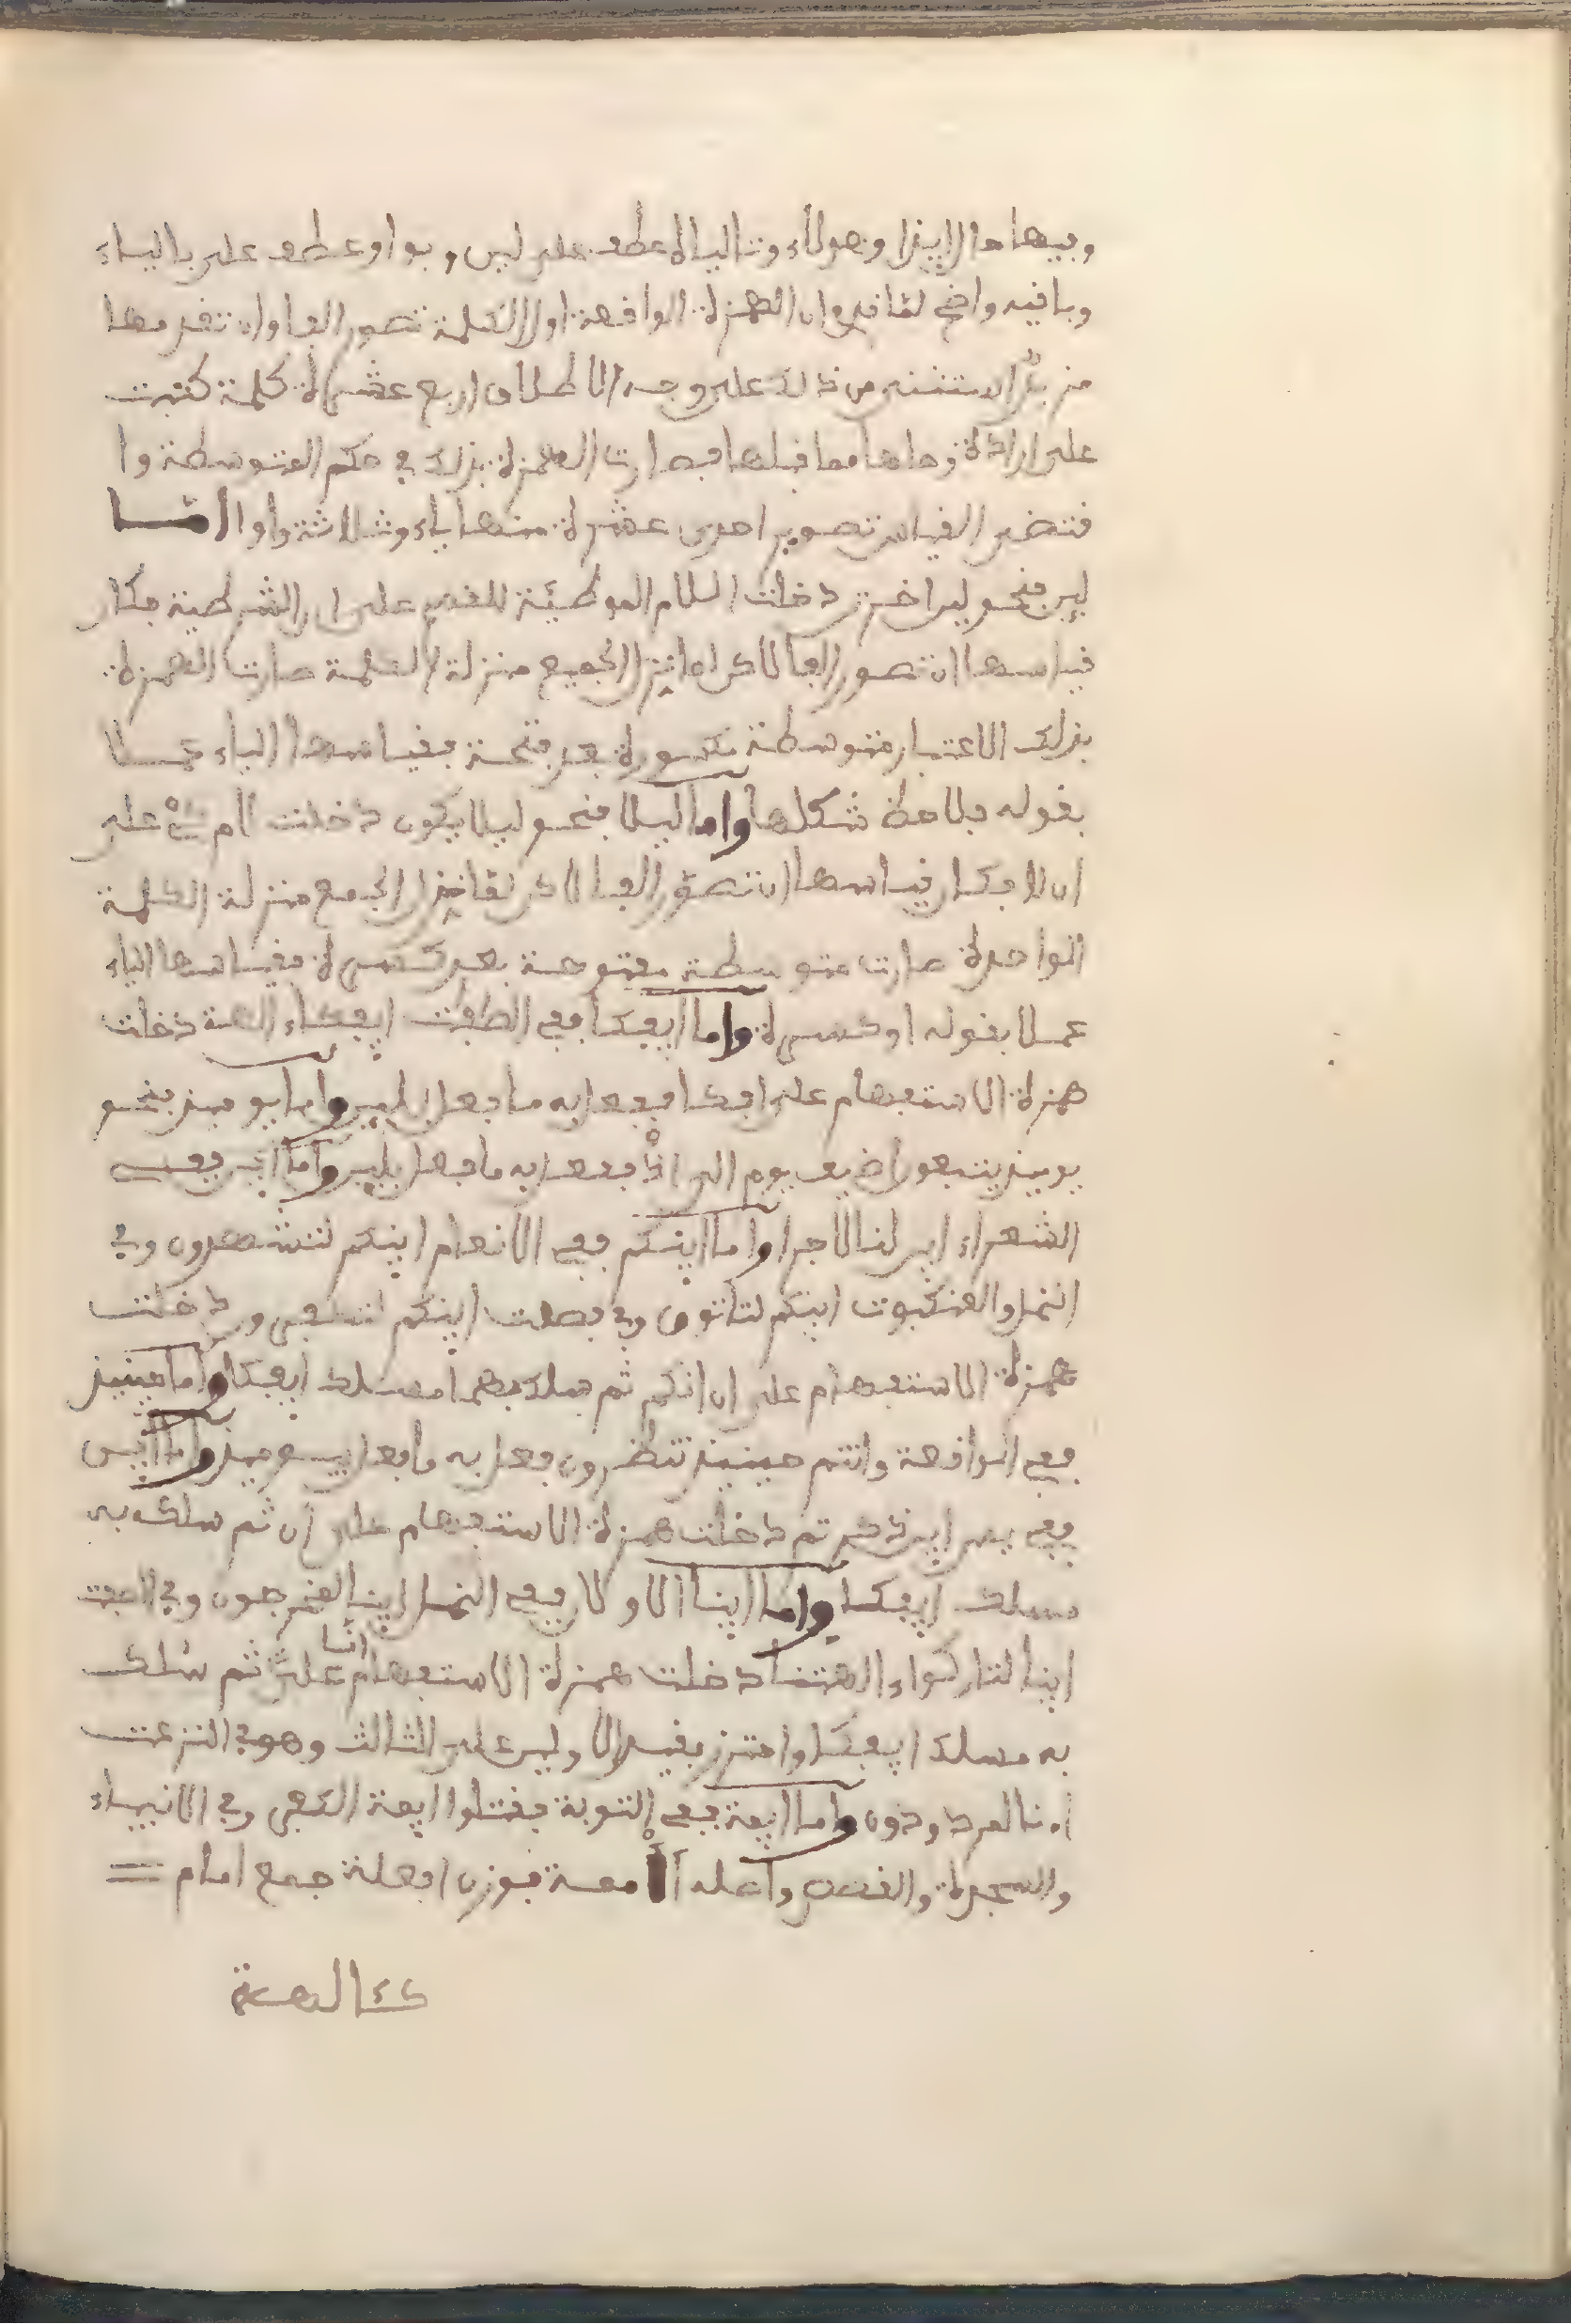 وفيها حال ايفا وهولاء وتاليه عطف على ليس وبواو عطف على بالياء
وباقيه واضح لما قدم ان الهمزة الواقعة اول الكلمة تصور الفا وان تقدمها
مزيد استثنى من ذلك على وجه الاطلاق اربع عشرة كلمة كتبت
على ارادة وصلها مما قبلها فصارت الهمزة بذلك في حكم المتوسطة وا
قتضى القياس تصوير احدى عشرة منها ياء وثلاثة واوا امـــا
لين فنحو لين اخرتن دخلت اللام الموطئة للقسم على ان الشرطية فكان
قياسها ان تصور الفا لاكن لما نزل الجميع منزلة الكلمة صارت الهمزة
بذلك الاعتبار متوسطة مكسورة بعد فتحة فقياسها الياء عملا
بقوله فلاحظ شكلها واما ليلا فنحو ليلا يكون دخلت لام كي على
ان لا فكان قياسها ان تصور الفا لاكن لما نزل الجمع منزلة الكلمة
الواحدة صارت متوسطة مفتوحة بعد كسرة فقياسها الياء
عملا بقوله او كسرة واما ايفكا ففي الصافات ايفكاء الهة دخلت
همزة الاستفهام على افكا ففعل به ما فعل بلين واما يوميذ فنحو
يوميذ يتبعون اضيف يوم الى اذ ففعل به ما فعل بلين واما اين ففي
الشعراء اين لنا لاجرا واما اينكم ففي الانعام اينكم لتشهدون وفي
النمل والعنكبوت اينكم لتاتون وفي فصلت اينكم لتكفرون دخلت
همزة الاستفهام على ان انكم ثم سلك بهما مسلك ايفكا واما حينيذ
ففي الواقعة وانتم حينيذ تنظرون فعل به ما فعل بيوميذ واما اين
ففي يس اين ذكرتم دخلت همزة الاستفهام على ان ثم سلك به
مسلك ايفكا واما اينا الاولان ففي النمل اينا لمخرجون وفي الصفت
اينا لتاركواء الهتنا دخلت همزة الاستفهام على انا ثم سلك
به مسلك ايفكا واحترز بقيد الاولين على الثالث وهو في النزعت
ا.نا لمردودون واما ايمة ففي التوبة فقتلوا ايمة الكفر وفي الانبياء
والسجدة والقصص واصله أأممة بوزن افعلة جمع امام
كساء الهمة